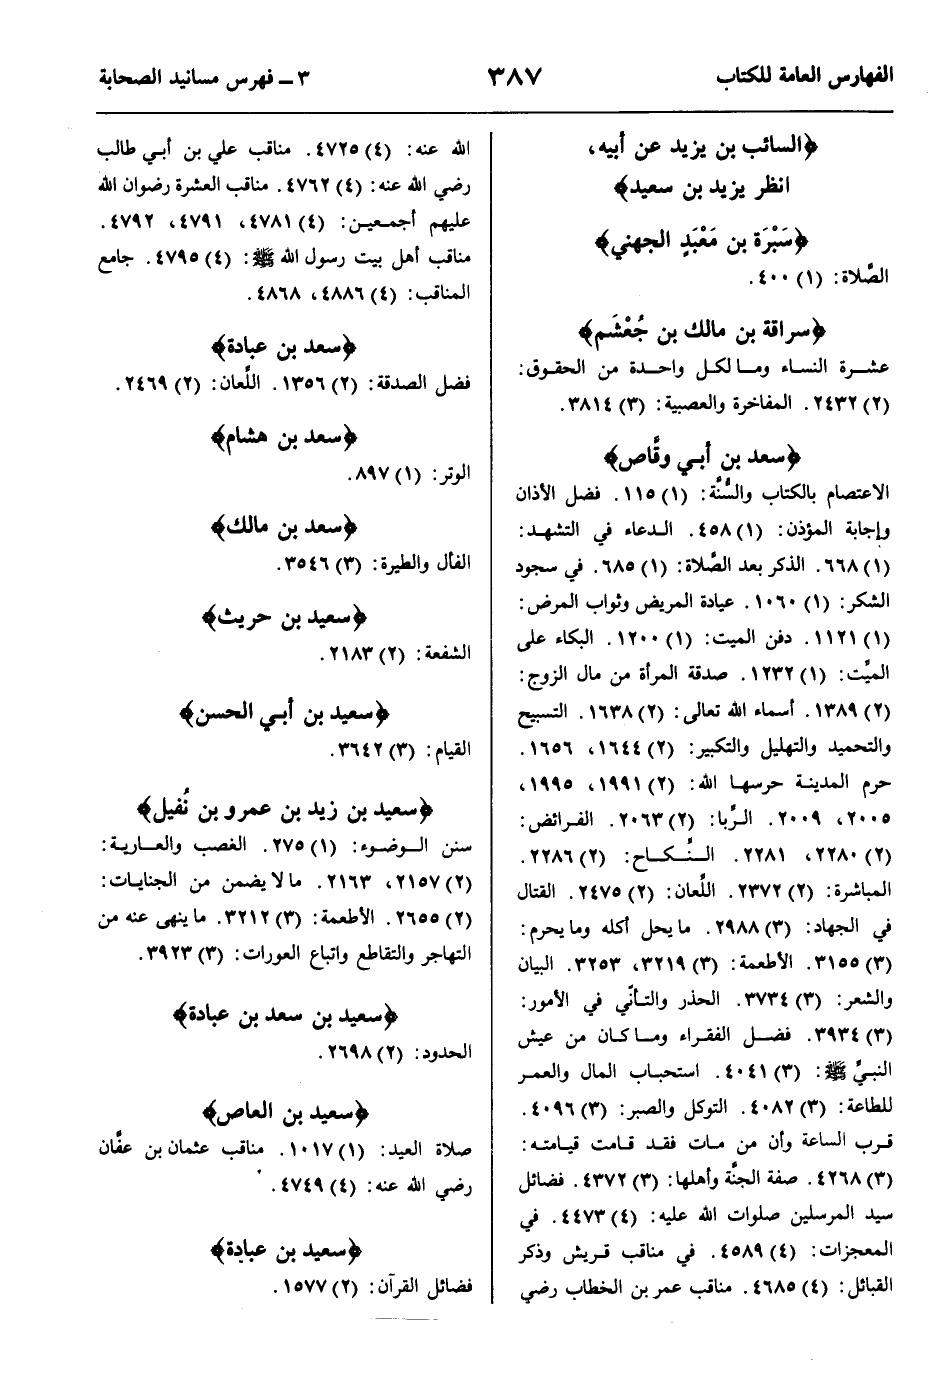 الفهارس العامة للكتاب
٣٨٧
٣ ــ فهرس مسانيد الصحابة
﴿السائب بن يزيد عن أبيه،
انظر يزيد بن سعيد﴾
﴿سَبْرَة بن مَعْبَدٍ الجهني﴾
الصَّلاة: (١) ٤٠٠.
﴿سراقة بن مالك بن جُعْشَم﴾
عشـرة النساء ومـا لكـل واحـدة من الحقوق:
(٢) ٢٤٣٢. المفاخرة والعصبية: (٣) ٣٨١٤.
﴿سعد بن أبـي وقَّاص﴾
الاعتصام بالكتاب والسُّنَّة: (١) ١١٥. فضل الأذان
وإجابة المؤذن: (١) ٤٥٨. الـدعاء في التشهـد:
(١) ٦٦٨. الذكر بعد الصَّلاة: (١) ٦٨٥. في سجود
الشكر: (١) ١٠٦٠. عيادة المريض وثواب المرض:
(١) ١١٢١. دفن الميت: (١) ١٢٠٠. البكاء على
الميِّت: (١) ١٢٣٢. صدقة المرأة من مال الزوج:
(٢) ١٣٨٩. أسماء الله تعالى: (٢) ١٦٣٨. التسبيح
والتحميد والتهليل والتكبير: (٢) ١٦٤٤، ١٦٥٦.
حرم المدينـة حرسهـا الله: (٢) ١٩٩١، ١٩٩٥،
٢٠٠٥، ٢٠٠٩. الـرِّبا: (٢) ٢٠٦٣. الفـرائض:
(٢) ٢٢٨٠، ٢٢٨١. الـنِّـكـاح: (٢) ٢٢٨٦.
المباشرة: (٢) ٢٣٧٢. اللِّعان: (٢) ٢٤٧٥. القتال
في الجهاد: (٣) ٢٩٨٨. ما يحل أكله وما يحرم:
(٣) ٣١٥٥. الأطعمة: (٣) ٣٢١٩، ٣٢٥٣. البيان
والشعر: (٣) ٣٧٣٤. الحذر والتـأنّي في الأمور:
(٣) ٣٩٣٤. فضـل الفقـراء ومـا كـان من عيش
النبيِّ ﷺ: (٣) ٤٠٤١. استحبـاب المال والعمر
للطاعة: (٣) ٤٠٨٢. التوكل والصبر: (٣) ٤٠٩٦.
قـرب الساعة وأن من مـات فقـد قـامت قيـامتـه:
(٣) ٤٢٦٨. صفة الجنَّة وأهلها: (٣) ٤٣٧٢. فضائل
سيد المرسلين صلوات الله عليه: (٤) ٤٤٧٣. في
المعجزات: (٤) ٤٥٨٩. في مناقب قـريش وذكر
القبائل: (٤) ٤٦٨٥. مناقب عمر بن الخطاب رضي
الله عنه: (٤) ٤٧٢٥. مناقب علي بن أبـي طالب
رضي الله عنه: (٤) ٤٧٦٢. مناقب العشرة رضوان الله
عليهم أجمـعيـن: (٤) ٤٧٨١، ٤٧٩١، ٤٧٩٢.
مناقب أهل بيت رسول الله ﷺ: (٤) ٤٧٩٥. جامع
المناقب: (٤) ٤٨٨٦، ٤٨٦٨.
﴿سعد بن عبادة﴾
فضل الصدقة: (٢) ١٣٥٦. اللِّعان: (٢) ٢٤٦٩.
﴿سعد بن هشام﴾
الوتر: (١) ٨٩٧.
﴿سعد بن مالك﴾
الفأل والطيرة: (٣) ٣٥٤٦.
﴿سعيد بن حريث﴾
الشفعة: (٢) ٢١٨٣.
﴿سعيد بن أبـي الحسن﴾
القيام: (٣) ٣٦٤٢.
﴿سعيد بن زيد بن عمرو بن نُفيل﴾
سنن الـوضـوء: (١) ٢٧٥. الغصب والعـاريـة:
(٢) ٢١٥٧، ٢١٦٣. ما لا يضمن من الجنايات:
(٢) ٢٦٥٥. الأطعمة: (٣) ٣٢١٢. ما ينهى عنه من
التهاجر والتقاطع واتباع العورات: (٣) ٣٩٢٣.
﴿سعيد بن سعد بن عبادة﴾
الحدود: (٢) ٢٦٩٨.
﴿سعيد بن العاص﴾
صلاة العيد: (١) ١٠١٧. مناقب عثمان بن عفَّان
رضي الله عنه: (٤) ٤٧٤٩.
﴿سعيد بن عبادة﴾
فضائل القرآن: (٢) ١٥٧٧.